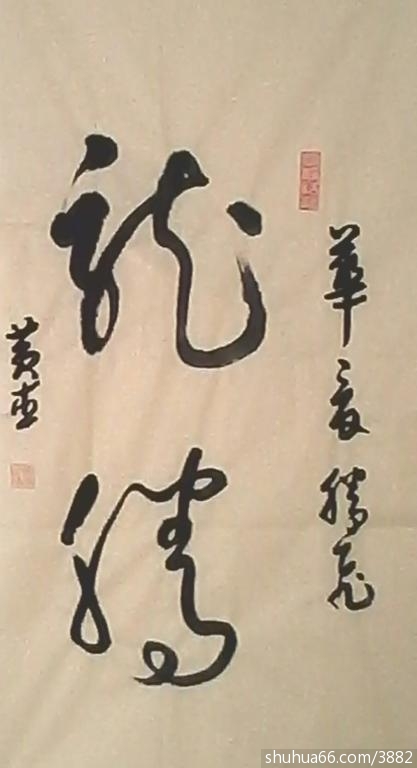 華夏騰飛
龍騰
黄
shuhua66.com/3882